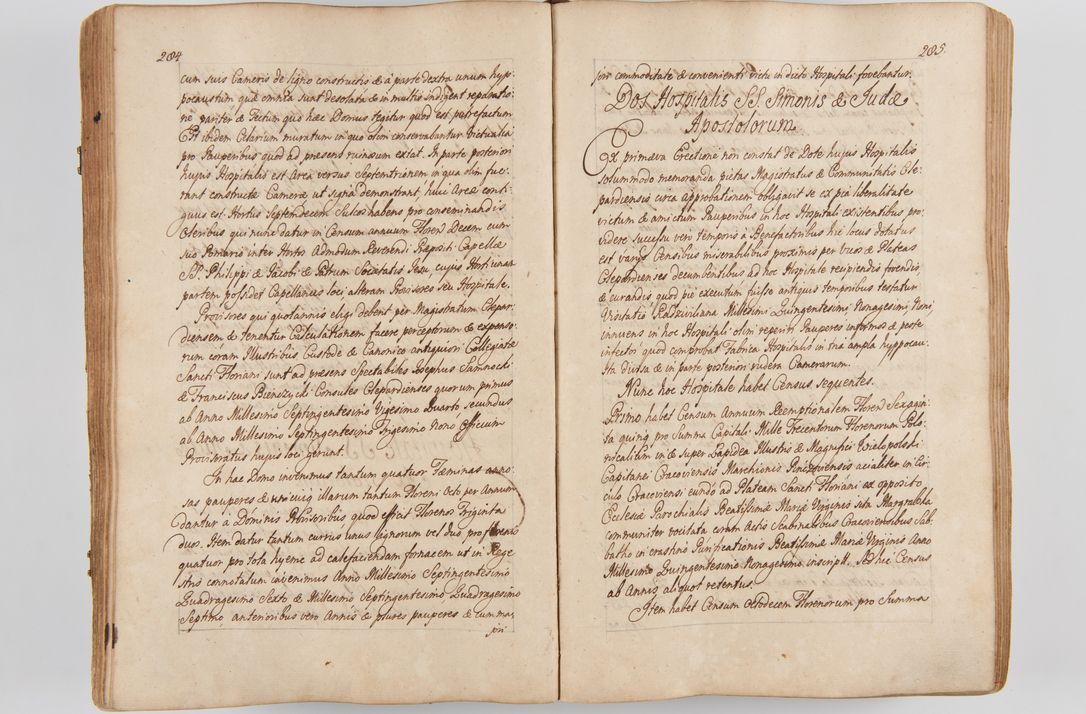 284
cum suis Cameris de ligno constructis & a parte dextra unum hyp-
pocaustum quæ omnia sunt desolata & in multis indigent reparatio-
ne pariter & Tectum quo hæc Domus tegitur quod est putrefactum
Est ibidem Celarium muratum in quo olim conservabantur Victualia
pro Pauperibus quod ad præsens ruinosum extat. In parte posteriori
hujus Hospitalis est Area versus Septentrionem in qua olim fue-
rant constructæ Cameræ ut signa demonstrant, huic Areæ conti-
guus est Hortus Septendecem Sulcos habens pro conseminandis
Oleribus qui nunc datur in Censum annuum Floren Decem cum
suo Pomario inter Hortos Admodum Reverendi Præpositi Capellæ
SS. Philippi & Jacobi & Patrum Societatis Jesu, cujus Horti unam
partem possidet Capellanus loci alteram Provisores seu Hospitale.
Provisores qui quotannis eligi debent per Magistratum Clepar-
diensem & tenentur Calculationem facere perceptorum & expenso-
rum coram Illustribus Custode & Canonico antiquiori Collegiatæ
Sancti Floriani sunt ad præsens Spectabiles Josephus Sannocki
& Franciscus Bienszycki Consules Clepardienses quorum primus
ab Anno Millesimo Septingentesimo Vigesimo Quarto secundus
ab Anno Millesimo Septingentesimo Trigesimo Nono Officium
Provisoratus hujus loci gerunt.
In hac Domo invenimus tantum quatuor Fæminas anno-
sas pauperes & unicuiq illarum tantum Floreni Octo per Annum
dantur a Dominis Provisoribus quod efficit Florenos Triginta
duos. Item datur tantum currus unus lignorum vel duo pro florenis
quatuor pro tota hyeme ad calefaciendam fornacem ut in Rege-
stris connotatum invenimus Anno Millesimo Septingentesimo
Quadragesimo Sexto & Millesimo Septingentesimo Quadragesimo
Septimo anterioribus vero Annis & plures pauperes & cum ma-
jori
285
jori commoditate & convenienti victu in dicto Hospitali fovebantur.
Dos Hospitalis SS. Simonis & Judæ
Apostolorum
Ex primæva Erectione non constat de Dote hujus Hospitalis
solummodo memoranda pietas Magistratus & Communitatis Cle-
pardiensis circa approbationem obligavit se ex pia liberalitate
victum & amictum Pauperibus in hoc Hospitali existentibus pro-
videre successu vero temporis a Benefactoribus hic locus dotatus
est varys Censibus miserabilibus proximis per vicos & Plateas
Clepardienses decumbentibus ad hoc Hospitale recipiendis fovendis
& curandis quod pie executum fuisse antiquis temporibus testatur
Visitatio Radziviliana Millesimi Quingentesimi Nonagesimi Noni
innuens in hoc Hospitali olim reperiri Pauperes infirmos & peste
infectos quod comprobat Fabrica Hospitalis in tria ampla hyppocau-
sta divisa & in parte posteriori rudera Camerarum.
Nunc hoc Hospitale habet Census sequentes.
Primo habet Censum Annuum Reemptionalem Floren Sexagin-
ta quinq pro Summa Capitali Mille Trecentorum Florenorum Polo-
nicalium in & super Lapidea Illustris & Magnifici Wielopolski
Capitanei Cracoviensis Marchionis Pinczoviensis aciali ter in Cir-
culo Cracoviensi eundo ad Plateam Sancti Floriani ex opposito
Ecclesiæ Parochialis Beatissimæ Mariæ Virginis sita Margrabska
communiter vocitata coram Actis Scabinalibus Cracoviensibus Sab-
batho in crastino Purificationis Beatissimæ Mariæ Virginis Anno
Millesimo Quingentesimo Nonagesimo inscript. Sed hic Census
ab Annis aliquot retentus.
Item habet Censum Octodecem Florenorum pro Summa